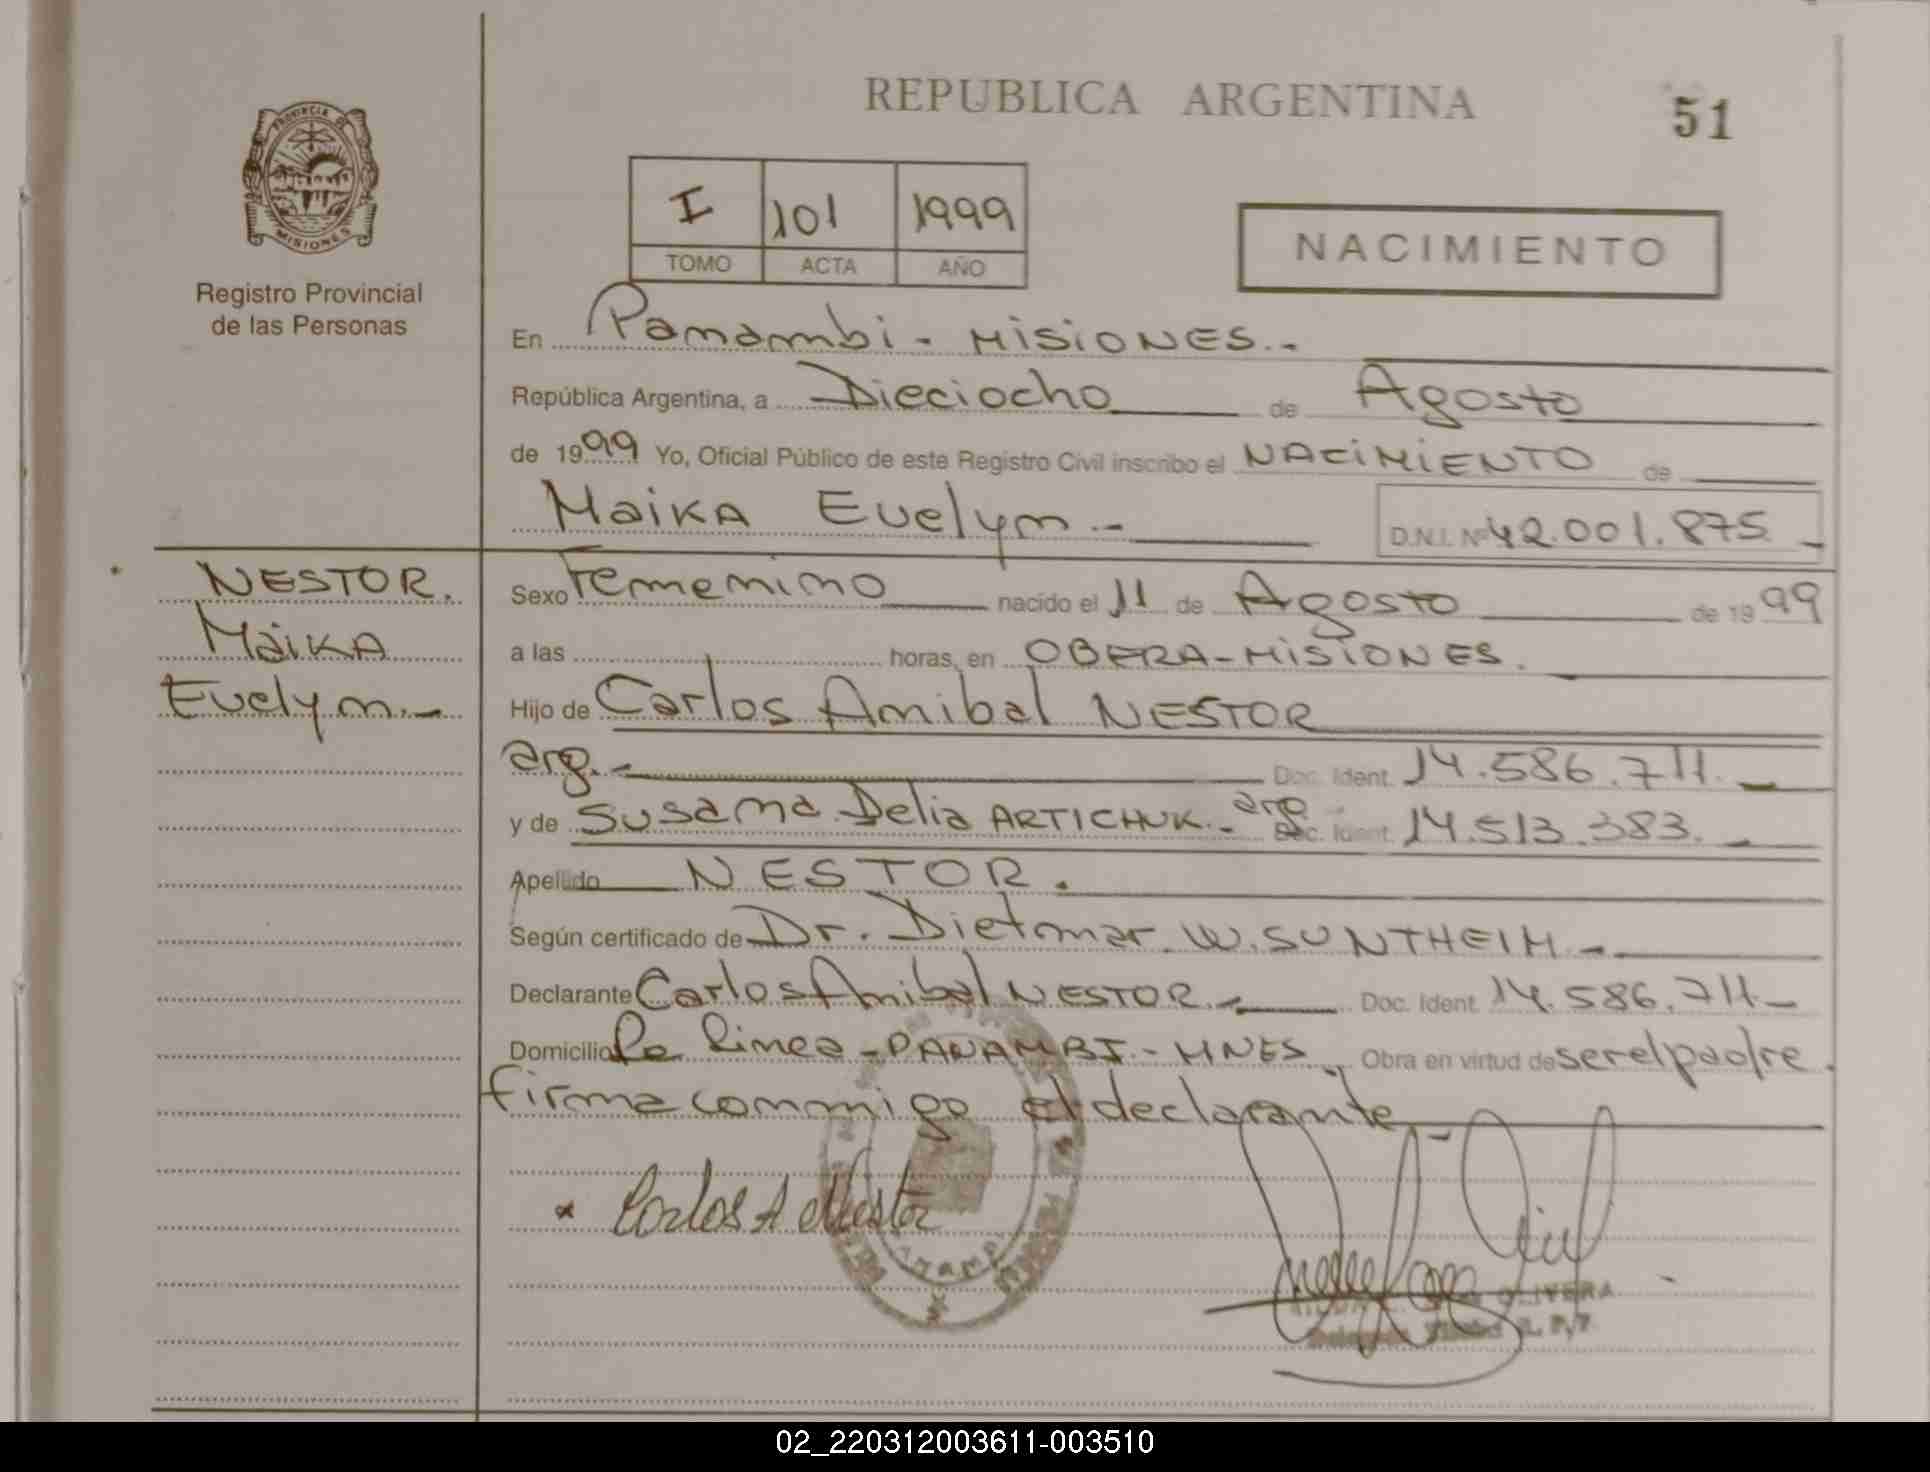 REPUBLICA ARGENTINA
51
PROVINCIA DE
MISIONES
Registro Provincial
de las Personas
I 101 1999
TOMO ACTA AÑO
NACIMIENTO
En Panambi - MISIONES.-
República Argentina, a Dieciocho de Agosto
de 1999 Yo, Oficial Público de este Registro Civil inscribo el NACIMIENTO de
Maika Evelyn.-
D.N.I. Nº 42.001.875.-
NESTOR.
Maika
Evelyn.-
Sexo Femenino nacido el 11 de Agosto de 1999
a las horas, en OBERA-MISIONES.
Hijo de Carlos Anibal NESTOR
arg.- Doc. Ident. 14.586.711.-
y de Susana Delia ARTICHUK.- arg Doc. Ident. 14.513.383.-
Apellido NESTOR.
Según certificado de Dr. Dietmar W. SUNTHEIM.-
Declarante Carlos Anibal NESTOR.- Doc. Ident. 14.586.711.-
Domicilio La Linea - PANAMBI - MNES. Obra en virtud de ser el padre.
firma conmigo el declarante.-
x Carlos A Nestor
OLIVERA